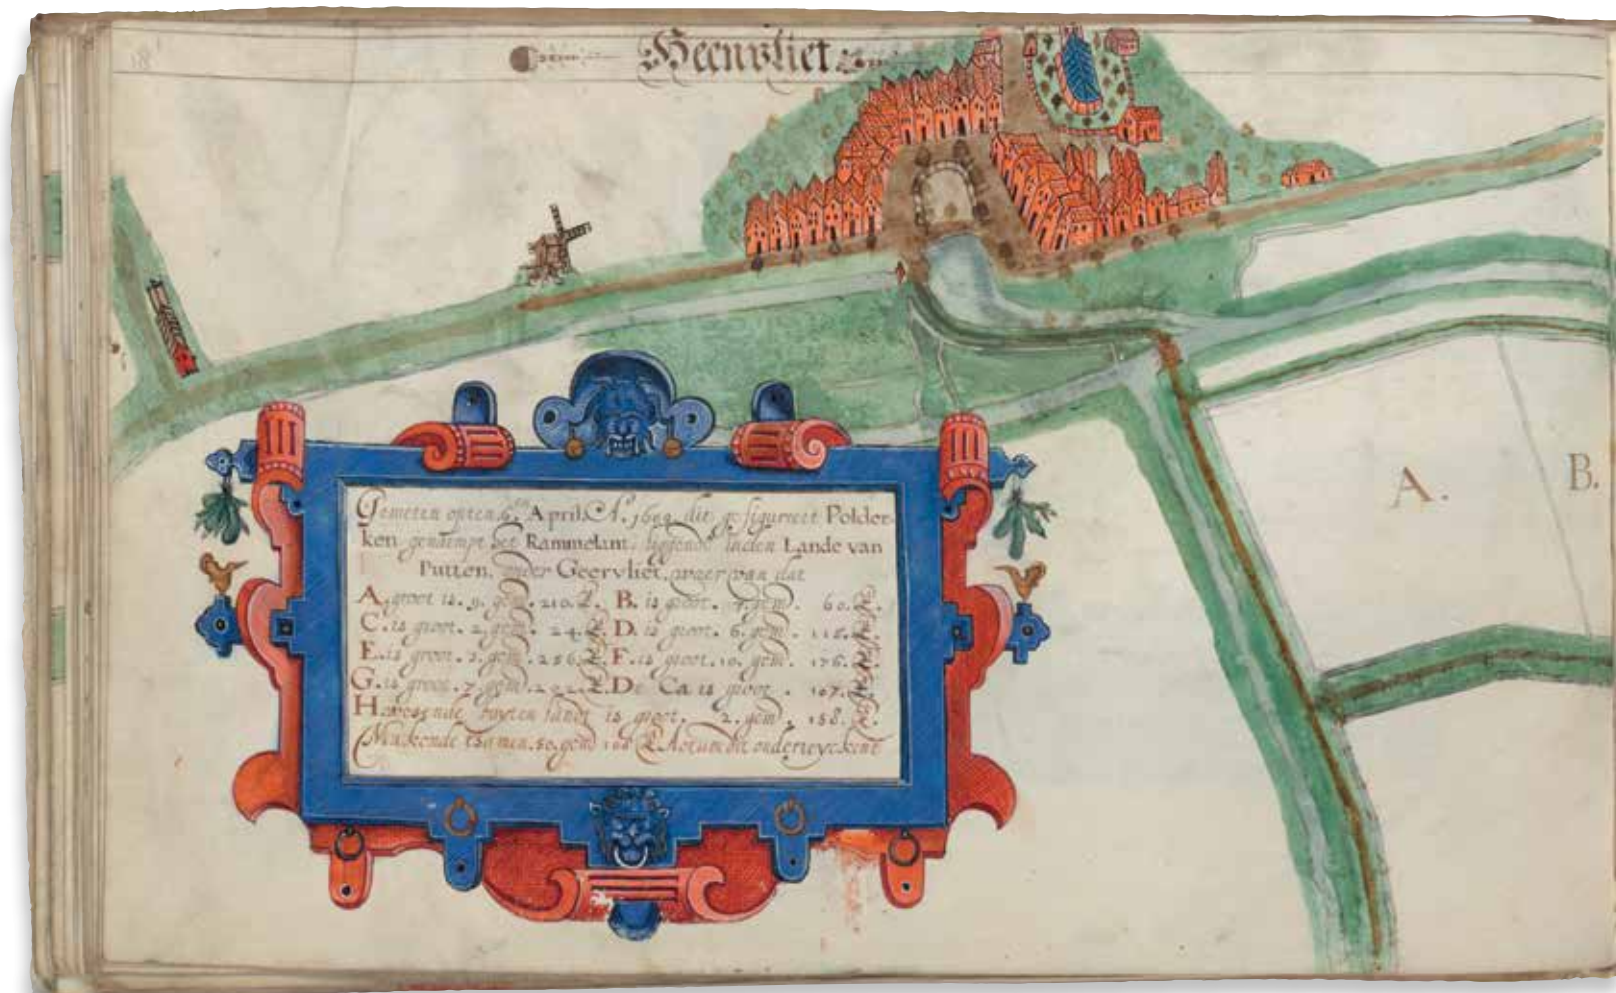 Heenvliet
A.
B.
Gemeten opten 6.en April. Ao. 1602 dit gefigureert Polder-
ken genaempt het Rammelant. liggende inden Lande van
Putten, onder Geervliet, waer van dat
A. groot is. 9. gem. 210. R. B. is groot. 7. gem. 60. R.
C. is groot. 2. gem. 24. R. D. is groot. 6. gem. 118. R.
E. is groot. 3. gem. 256. R. F. is groot. 10. gem. 176. R.
G. is groot. 7. gem. 292. R. De Ca is groot. 107. R.
H. wesende buyten landt is groot. 2. gem. 158. R.
Maekende tsamen. 50. gem. 168 R. Actum dit onderteyckent